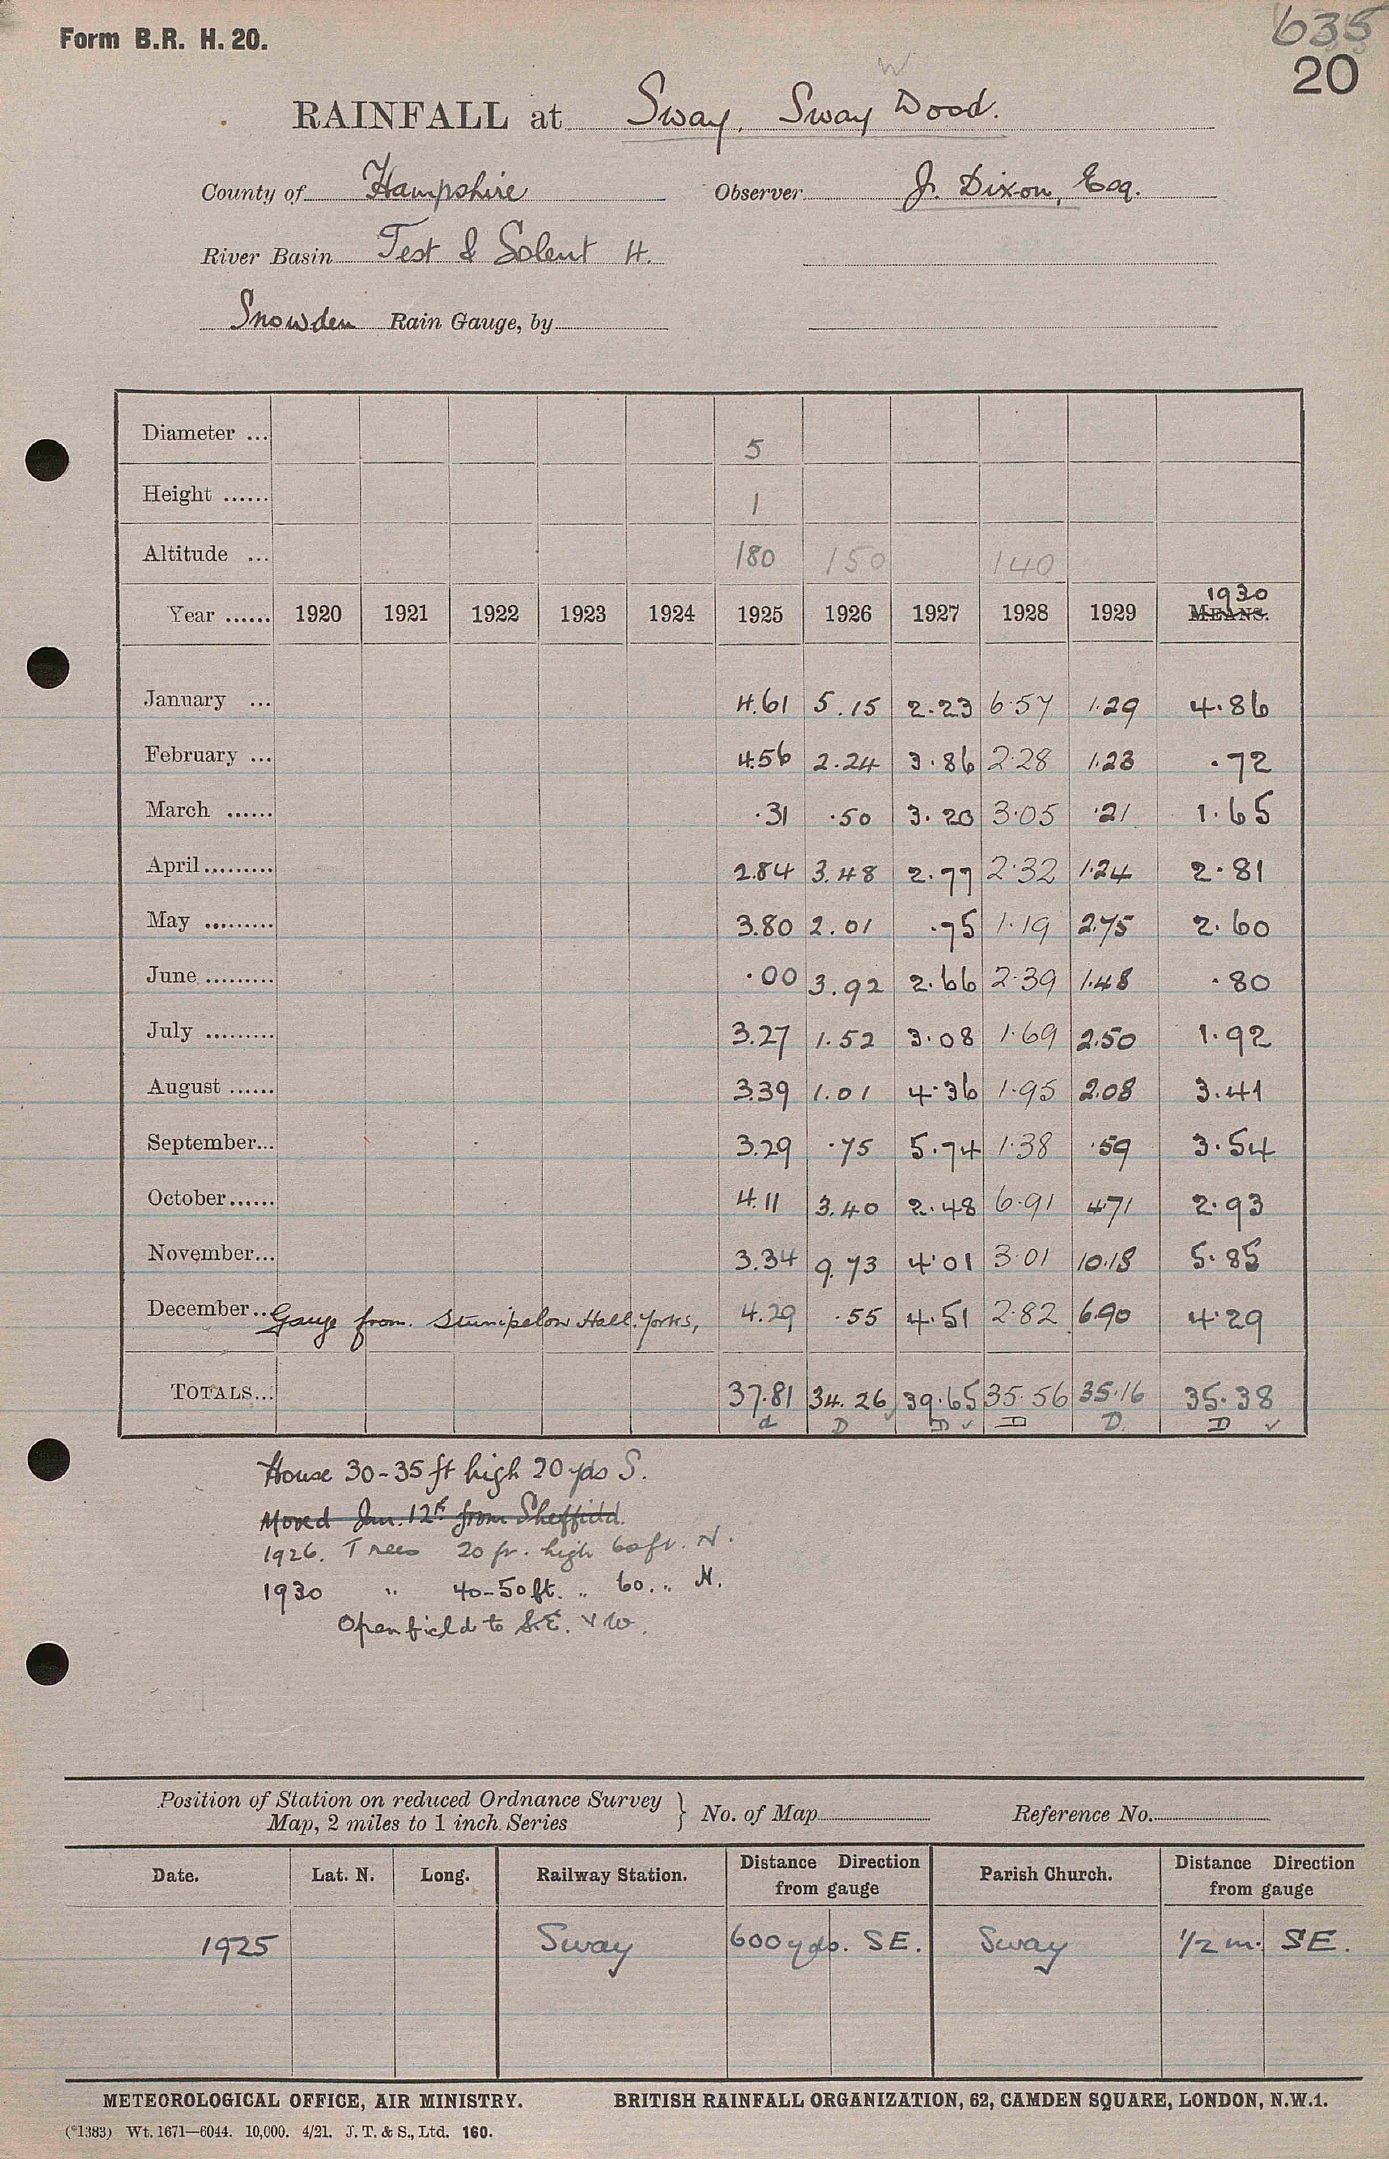 Form B.R. H. 20.
635
20
RAINFALL at Sway, Sway Wood.
County of Hampshire Observer J. Dixon, Esq.
River Basin Test & Solent H.
Snowden Rain Gauge, by
Diameter ... 5
Height ...... 1
Altitude ... 180 150 140
Year ...... 1920 1921 1922 1923 1924 1925 1926 1927 1928 1929 1930 MEANS.
January ... 4.61 5.15 2.23 6.57 1.29 4.86
February ... 4.56 2.24 3.86 2.28 1.23 .72
March ...... .31 .50 3.20 3.05 .21 1.65
April......... 2.84 3.48 2.77 2.32 1.24 2.81
May ......... 3.80 2.01 .75 1.19 2.75 2.60
June ......... .00 3.92 2.66 2.39 1.48 .80
July ......... 3.27 1.52 3.08 1.69 2.50 1.92
August ...... 3.39 1.01 4.36 1.95 2.08 3.41
September... 3.29 .75 5.74 1.38 .59 3.54
October...... 4.11 3.40 2.48 6.91 4.71 2.93
November... 3.34 9.73 4.01 3.01 10.18 5.85
December... Gauge from Hall. Yorks, 4.29 .55 4.51 2.82 6.90 4.29
TOTALS... 37.81 34.26 39.65 35.56 35.16 35.38
d D D ✓ D D. D ✓
House 30-35 ft high 20 yds S.
Moved Jan. 12th from Sheffield.
1926. Trees 20 ft. high 60 ft. N.
1930 " 40-50 ft. " 60 " N.
Open field to S.E. & W.
Position of Station on reduced Ordnance Survey
Map, 2 miles to 1 inch Series } No. of Map Reference No.
Date. Lat. N. Long. Railway Station. Distance Direction from gauge Parish Church. Distance Direction from gauge
1925 Sway 600 yds. SE. Sway 1/2 m. SE.
METEOROLOGICAL OFFICE, AIR MINISTRY. BRITISH RAINFALL ORGANIZATION, 62, CAMDEN SQUARE, LONDON, N.W.1.
(*1383) Wt. 1671—6044. 10,000. 4/21. J. T. & S., Ltd. 160.